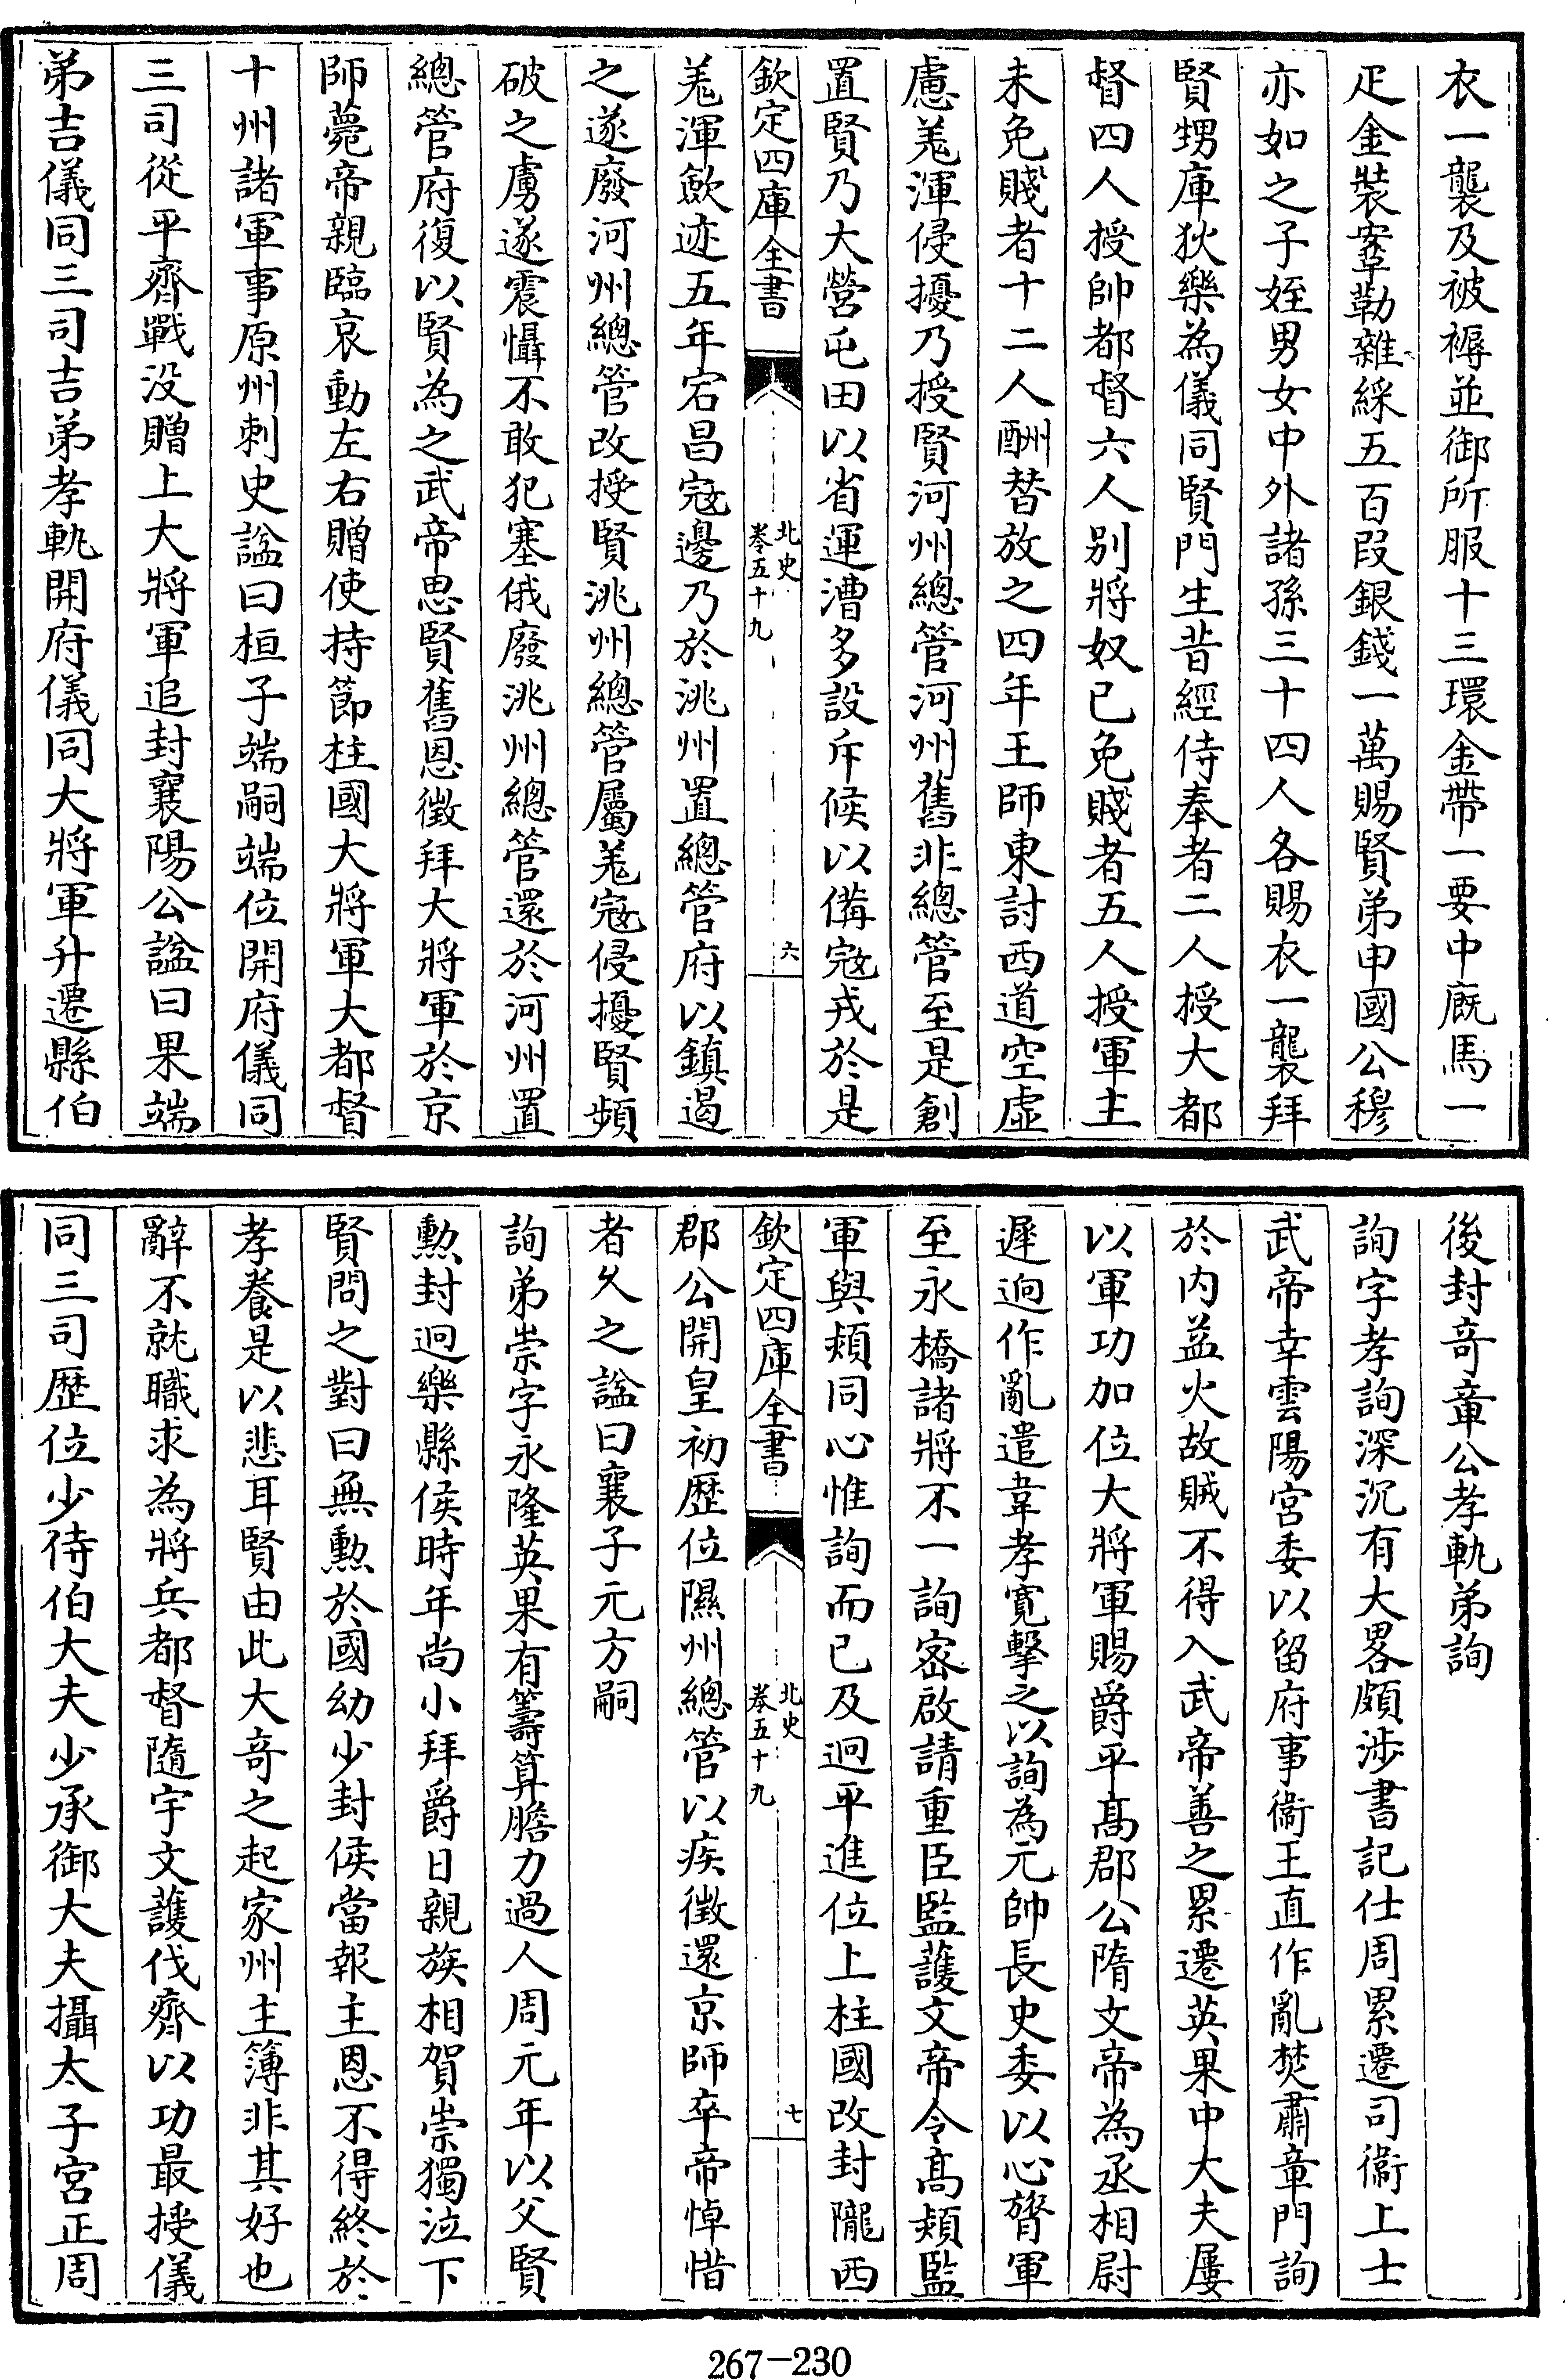 衣一襲及被褥並御所服十三環金帶一要中廐馬一
疋金裝鞌勒雜綵五百段銀錢一萬賜賢弟申國公穆
亦如之子姪男女中外諸孫三十四人各賜衣一襲拜
賢甥庫狄樂為儀同賢門生昔經侍奉者二人授大都
督四人授帥都督六人别將奴已免賤者五人授軍主
未免賤者十二人酬替放之四年王師東討西道空虛
慮羌渾侵擾乃授賢河州總管河州舊非總管至是創
置賢乃大營屯田以省運漕多設斥候以備寇戎於是
欽定四庫全書
北史
卷五十九
六
羌渾斂迹五年宕昌寇邊乃於洮州置總管府以鎮遏
之遂廢河州總管改授賢洮州總管屬羌寇侵擾賢頻
破之虜遂震懾不敢犯塞俄廢洮州總管還於河州置
總管府復以賢為之武帝思賢舊恩徵拜大將軍於京
師薨帝親臨哀動左右贈使持節柱國大將軍大都督
十州諸軍事原州刺史諡曰桓子端嗣端位開府儀同
三司從平齊戰没贈上大將軍追封襄陽公諡曰果端
弟吉儀同三司吉弟孝軌開府儀同大將軍升遷縣伯
後封竒章公孝軌弟詢
詢字孝詢深沉有大畧頗涉書記仕周累遷司衞上士
武帝幸雲陽宫委以留府事衞王直作亂焚肅章門詢
於内益火故賊不得入武帝善之累遷英果中大夫屢
以軍功加位大將軍賜爵平高郡公隋文帝為丞相尉
遲迥作亂遣韋孝寛擊之以詢為元帥長史委以心膂軍
至永橋諸將不一詢密啟請重臣監護文帝令髙熲監
軍與熲同心惟詢而已及迥平進位上柱國改封隴西
欽定四庫全書
北史
卷五十九
七
郡公開皇初歴位隰州總管以疾徵還京師卒帝悼惜
者久之諡曰襄子元方嗣
詢弟崇字永隆英果有籌算膽力過人周元年以父賢
勲封迥樂縣侯時年尚小拜爵日親族相賀崇獨泣下
賢問之對曰無勲於國幼少封侯當報主恩不得終於
孝養是以悲耳賢由此大竒之起家州主簿非其好也
辭不就職求為將兵都督隨宇文護伐齊以功最授儀
同三司歴位少侍伯大夫少承御大夫攝太子宫正周
267-230